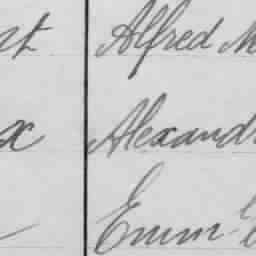 Alfred M
x Alexand
Emm